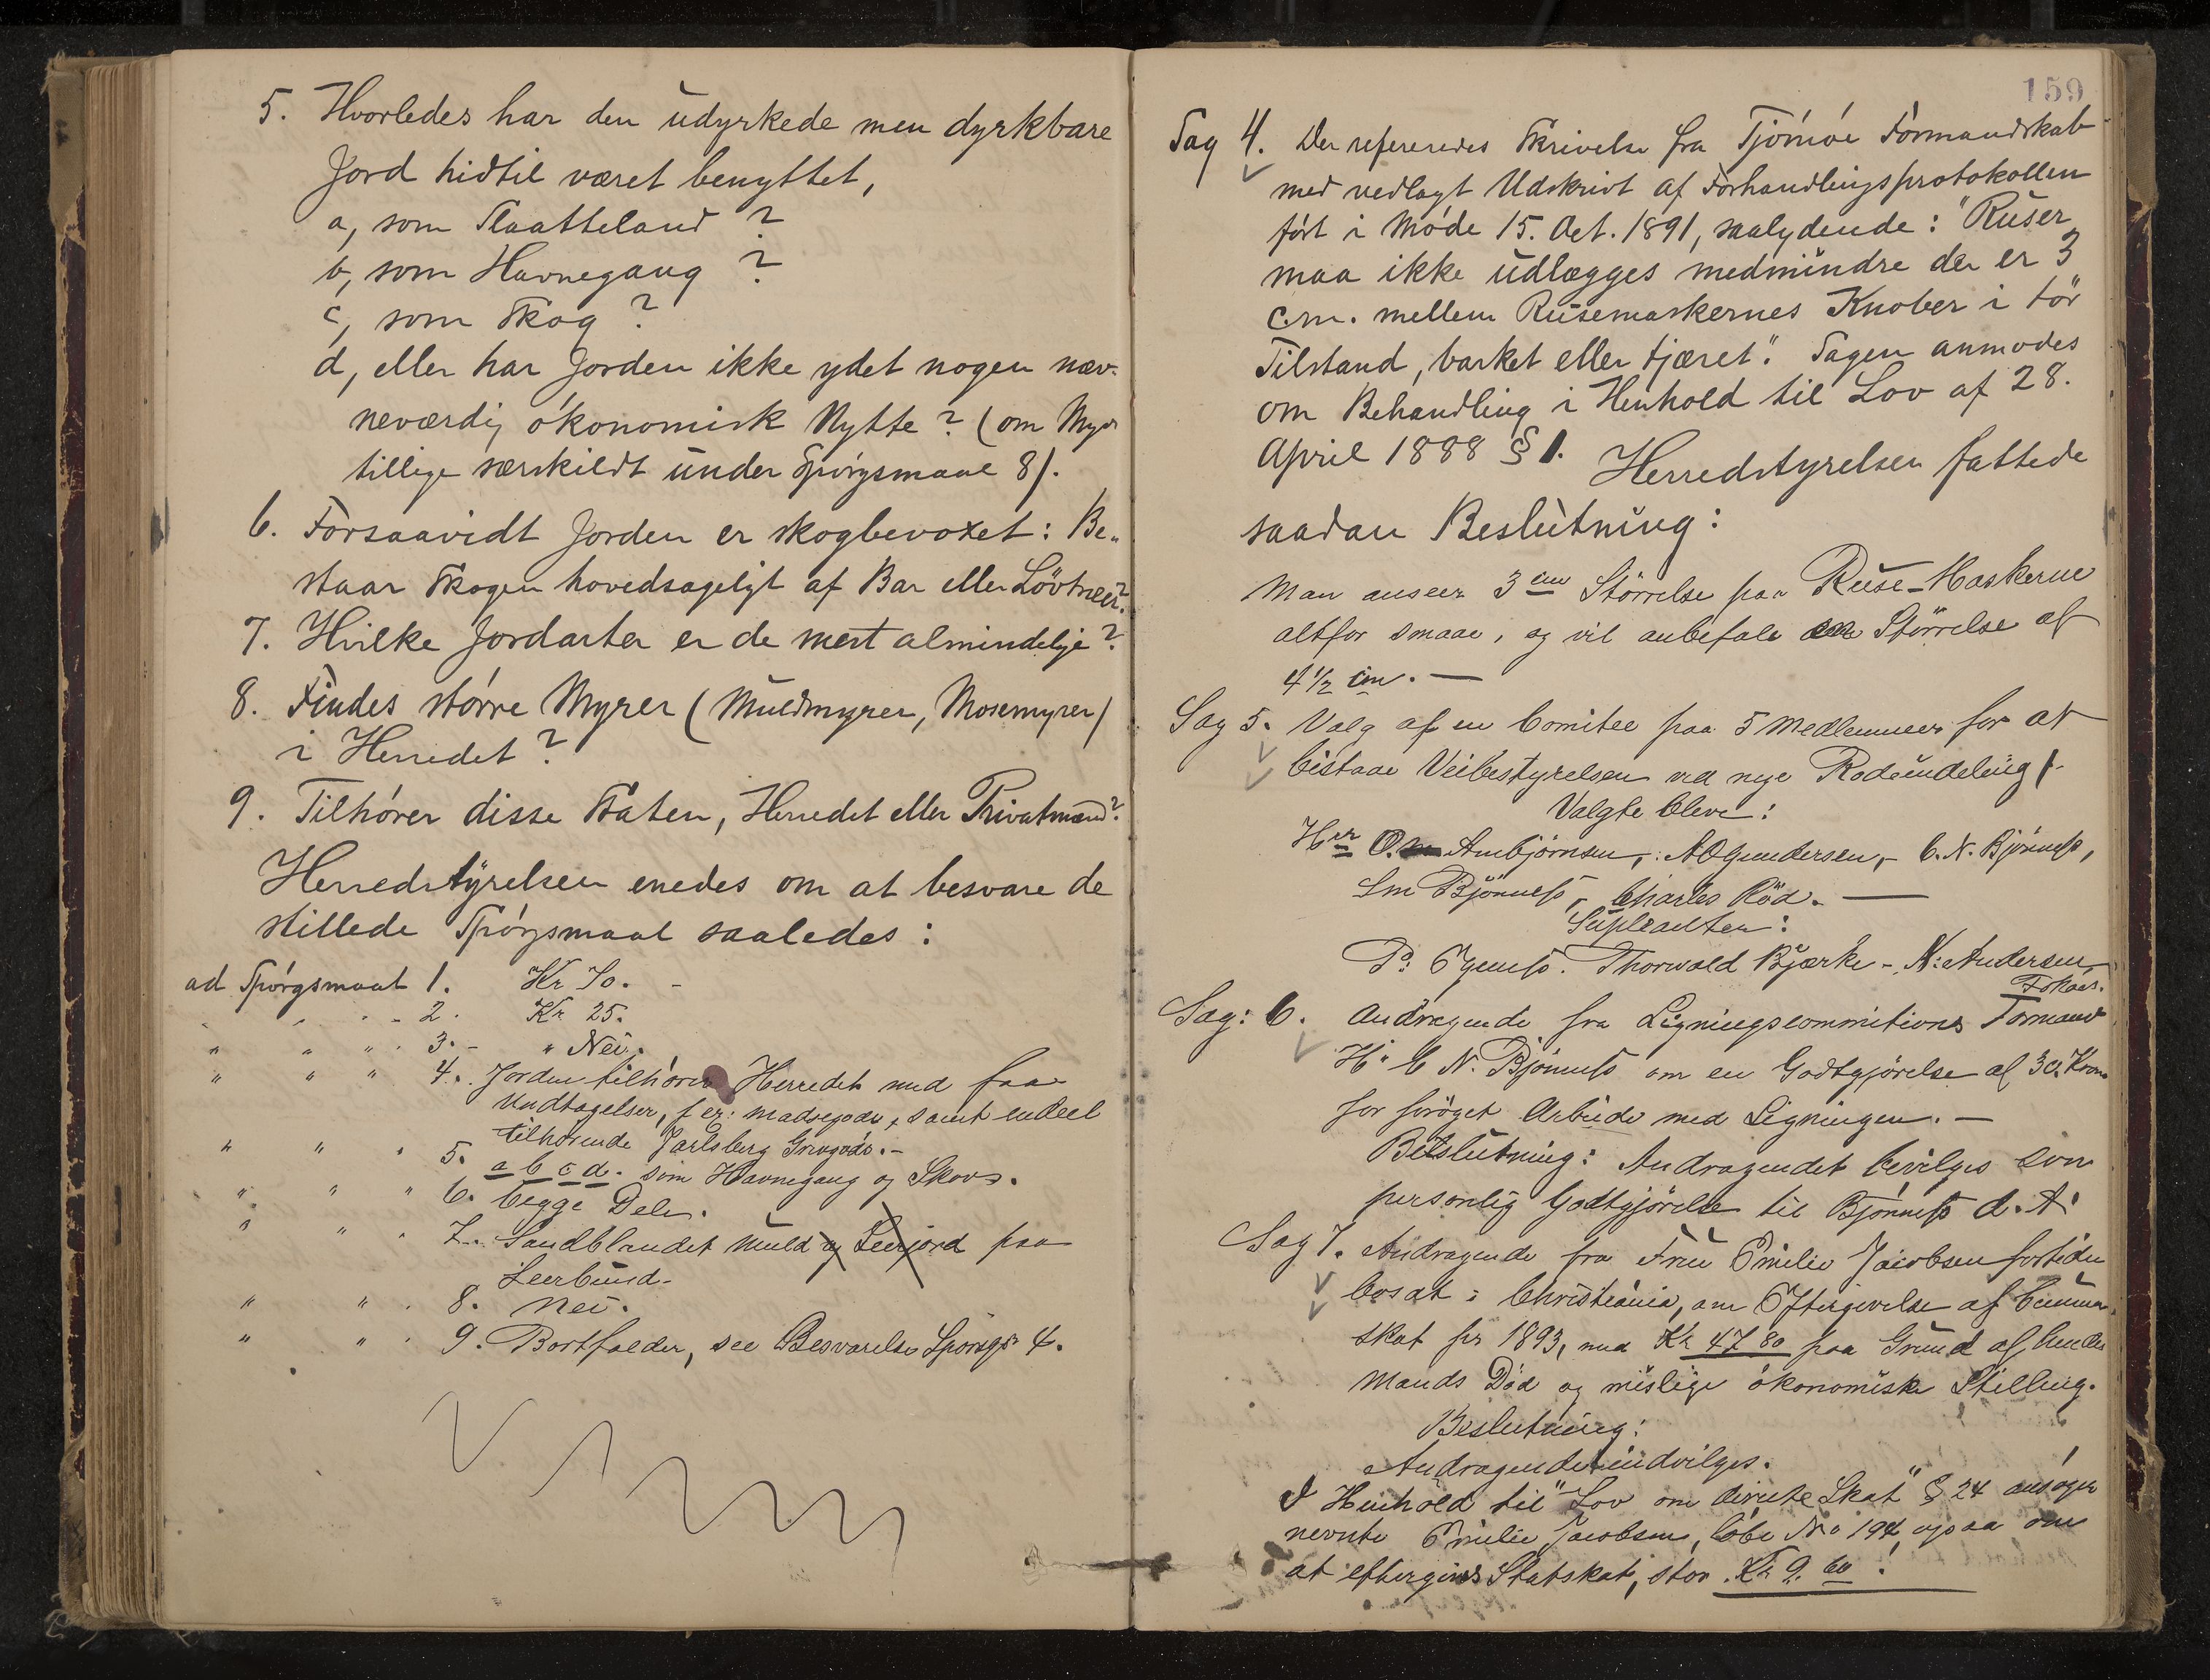 5. Hvorledes har den udyrkede men dyrkbare
Jord hidtil været benyttet,
a, som Slaatteland?
b, som Havnegang?
c, som Skog?
d, eller har Jorden ikke ydet nogen næv-
neværdig økonomisk Nytte? (om Myr
tillige særskildt under Spørgsmaal 8).
6. Forsaavidt Jorden er skogbevoxet: Be-
staar Skogen hovedsageligt af Bar eller Løvtræer?
7. Hvilke Jordarter er de mest almindelige?
8. Findes større Myrer (Muldmyrer, Mosemyrer)
i Herredet?
9. Tilhører disse Staten, Herredet eller Privatmænd?
Herredstyrelsen enedes om at besvare de
stillede Spørgsmaal saaledes:
ad Spørgsmaal 1. Kr 50. -
" " " 2. Kr 25.
" " " 3. - " Nei.
" " " 4. Jorden tilhører Herredet med faa
Undtagelser, f ex: , samt endeel
tilhørende Jarlsberg Grevgods. -
" " " 5. a b c d. som Havnegang og Skov.
" " " 6. begge Dele.
" " " 7. Sandblandet Muld og Leerjord paa
Leerbund.
" " " 8. Nei.
" " " 9. Bortfalder, see Besvarelse Spørsgs 4.
159
Sag 4. Der refereredes Skrivelse fra Tjømøe Formandskab
med vedlagt Udskrivt af Forhandlingsprotokollen
ført i Møde 15. Oct. 1891, saalydende: "Ruser
maa ikke udlægges medmindre der er 3
c.m. mellem Rusemaskernes Knober i tør
Tilstand, barket eller tjæret". Sagen anmodes
om Behandling i Henhold til Lov af 28.
April 1888 § 1. Herredstyrelsen fattede
saadan Beslutning:
Man anseer 3 cm Størrelse paa Ruse-Maskerne
altfor smaae, og vil anbefale en Størrelse af
4 1/2 cm. —
Sag 5. Valg af en Comitee paa 5 Medlemmer for at
bistaae Veibestyrelsen ved nye Rodeindeling.
Valgte bleve:
Hrr O. Ambjørnsen, A Gundersen, - C. N. Bjønnes,
Bjønnes, Charles Rød. —
Supleanter:
P: Eyenes. Thorwald Bjærke - N: Andersen,
Sag: 6. Andragende fra Ligningscommitions Formand
Hr C N. Bjønnes om en Godtgjørelse af 30. Kron
for forøget Arbeide med Ligningen. —
Beslutning: Andragendet bevilges som
personlig Godtgjørelse til Bjønnes d. A.
Sag 7. Andragende fra Frue Emilie Jacobsen fortiden
bosat i Christiania, om Eftergivelse af Commu-
skat for 1893, med Kr 47 80 paa Grund af hendes
Mands Død og mislige økonomiske Stilling.
Beslutning:
Andragendet indvilges.
I Henhold til "Lov om directe Skat" § 24 ansøger
nevnte Emilie Jacobsen, løbe No 194, ogsaa om
at eftergives Statskat, stor Kr 9. 60.